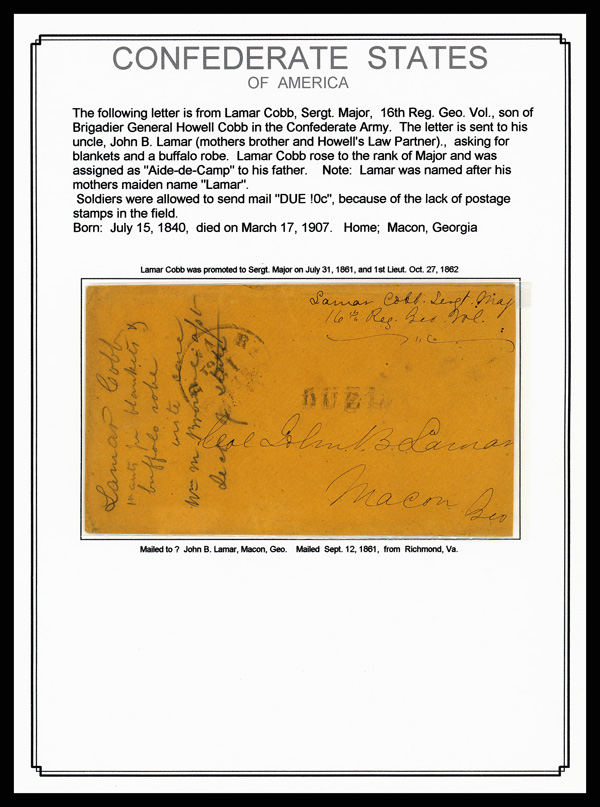 CONFEDERATE STATES
OF AMERICA
The following letter is from Lamar Cobb, Sergt. Major, 16th Reg. Geo. Vol., son of
Brigadier General Howell Cobb in the Confederate Army. The letter is sent to his
uncle, John B. Lamar (mothers brother and Howell's Law Partner)., asking for
blankets and a buffalo robe. Lamar Cobb rose to the rank of Major and was
assigned as "Aide-de-Camp" to his father. Note: Lamar was named after his
mothers maiden name "Lamar".
Soldiers were allowed to send mail "DUE !0c", because of the lack of postage
stamps in the field.
Born: July 15, 1840, died on March 17, 1907. Home; Macon, Georgia
Lamar Cobb was promoted to Sergt. Major on July 31, 1861, and 1st Lieut. Oct. 27, 1862
Lamar Cobb. Sergt. Maj
16th Reg. Geo. Vol.
DUE 1
Col John. B. Lamar
Macon
Geo
Lamar Cobb
wants for blankets &
buffalo robe
write care
Wm M Browne
Sec of State
Mailed to ? John B. Lamar, Macon, Geo. Mailed Sept. 12, 1861, from Richmond, Va.